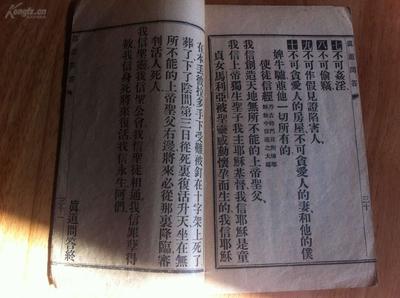 真道問答
三十
七 不可姦淫
八 不可偷竊
九 不可作假見證陷害人
十 不可貪愛人的房屋不可貪愛人的妻和他的僕
婢牛驢並他一切所有的
使徒信經
我信創造天地無所不能的上帝聖父
我信上帝獨生聖子我主耶穌基督我信耶穌是童
貞女馬利亞被聖靈感動懷孕而生的我信耶穌
在本丟彼拉多手下受難被釘在十字架上死了
葬了下了陰間第三日從死裏復活升天坐在無
所不能的上帝聖父右邊將來必從那裏降臨審
判活人死人
我信聖靈我信聖公會我信聖徒相通我信罪孽得
赦我信身死將來復活我信永生阿們
真道問答終